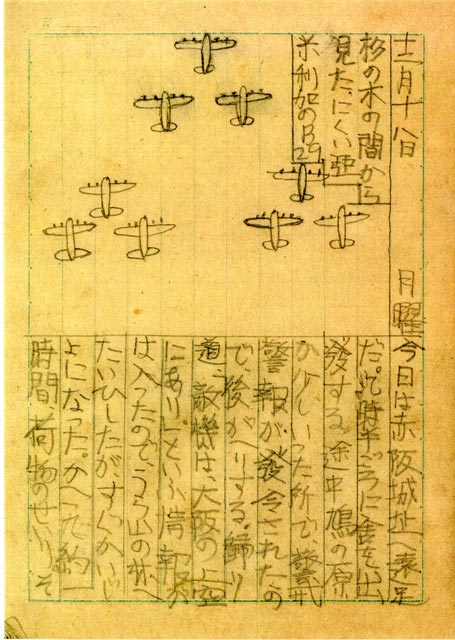 十二月十八日　月曜
杉の木の間から
見た、にくい亞
米利加のB29
今日は赤阪城址へ遠足
だ。九時半ごろに舎を出
發する。途中鳩の原
か少しいった所で、警戒
警報が發令されたの
で、後がへりする。歸り
道、敵機は、大阪の上空
にあり」といふ情報が
は入ったので、うら山の林へ
たいひしたがすぐかいじ
よになった。かへって約一
時間、荷物のせいりそ